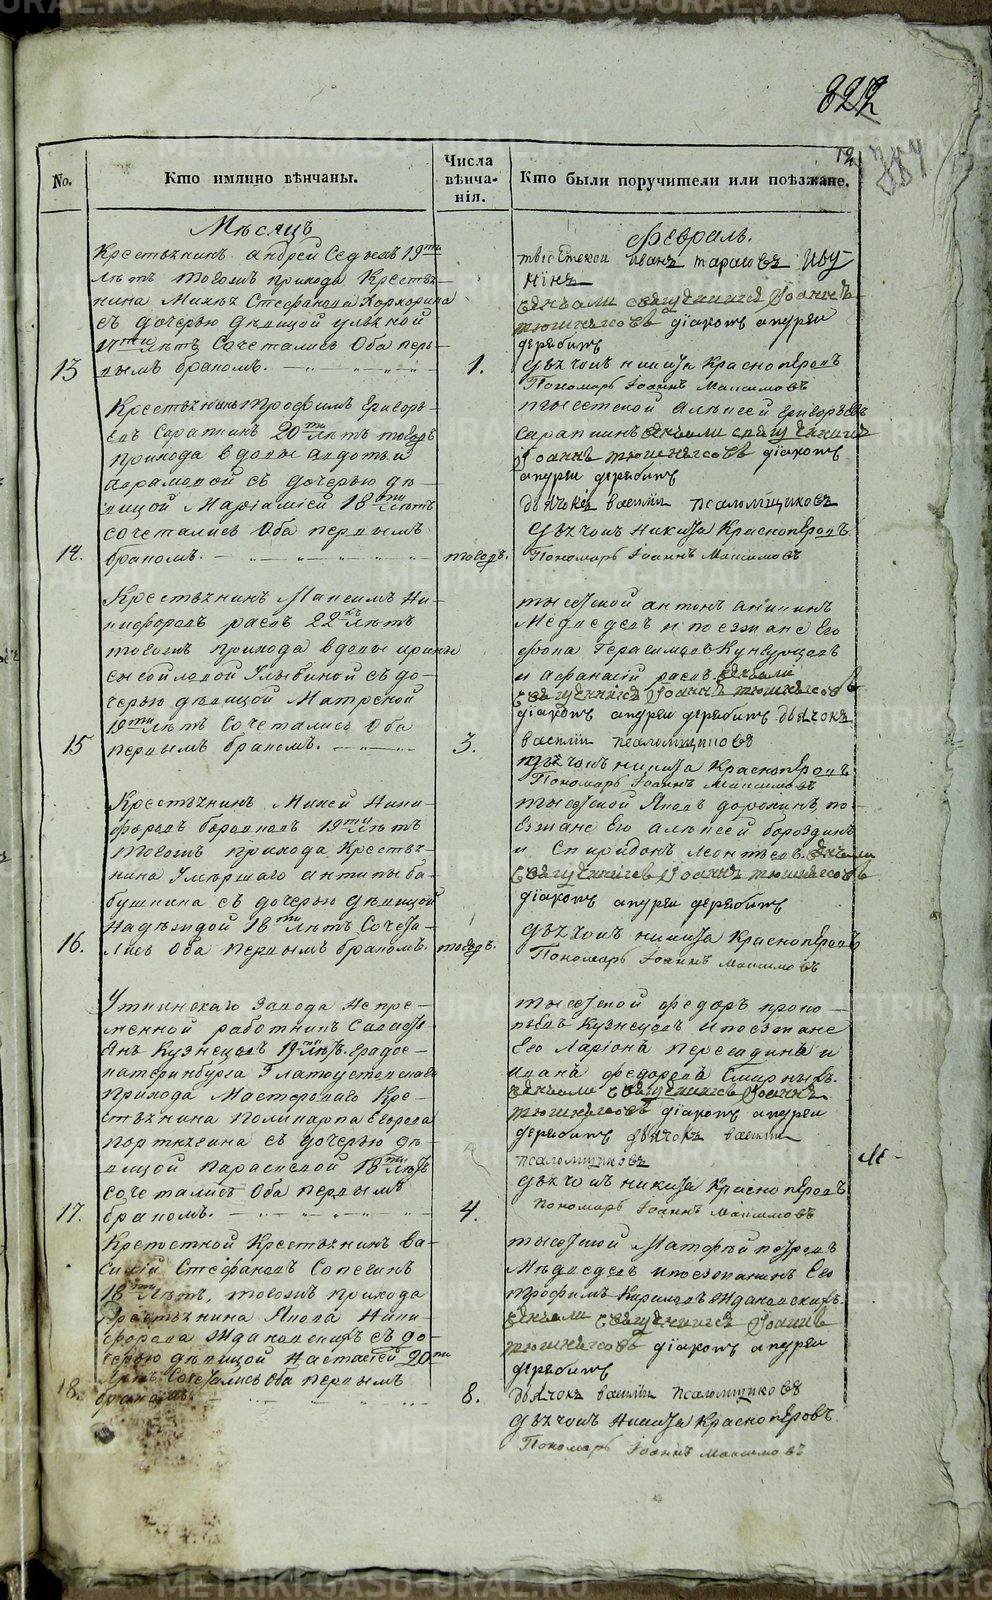 822
12
387
No.
Кто имянно вѣнчаны.
Числа
вѣнча-
нія.
Кто были поручители или поѣзжане.
Мѣсяцъ
Февраль.
Крестьянинъ Андрей Седыхъ 19ти
лѣтъ тогожъ прихода Крестья-
нина Стефанова
съ дочерью дѣвицой Ульяной
17ти лѣтъ Сочетались Оба пер-
13
вымъ бракомъ.
1.
тысетской Иванъ Тарасовъ
вѣнчали священникъ Іоаннъ
Тюшнясовъ діаконъ андреи
дерябинъ
Дьячокъ никита Красноперовъ
Пономарь Іоаннъ Максимовъ
Крестьянинъ Трофимъ Григорь-
евъ Сарапкинъ 20ти лѣтъ тогожъ
прихода вдовы Авдотьи
Аврамовой съ дочерью дѣ-
вицой 18ти лѣтъ
сочетались Оба первымъ
14.
бракомъ.
тогожъ.
тысетской Алѣксей Григорьевъ
Сарапкинъ вѣнчали священникъ
Іоаннъ Тюшнясовъ діаконъ
андреи дерябинъ
дьячокъ василіи псаломщиковъ
Дьячокъ Никита Красноперовъ
Пономарь Іоаннъ Максимовъ
Крестьянинъ Максимъ Ни-
кифоровъ 22хъ лѣтъ
тогожъ прихода вдовы ирины
съ до-
черью дѣвицой Матрсной
19ти лѣтъ Сочетались Оба
15
первымъ бракомъ.
3.
тысетской антонъ
Медведевъ и поезжане Его
фома Герасимовъ Кунгурцовъ
и Афанасій вѣнчали
священникъ Іоаннъ Тюшнясовъ
діаконъ андреи дерябинъ дьячокъ
василіи псаломщиковъ
дьячокъ никита Красноперовъ
Пономарь Іоаннъ Максимовъ
Крестьянинъ Ники-
форовъ 19ти лѣтъ
тогожъ прихода Крестья-
нина Умершаго антипы ба-
бушкина съ дочерью дѣвицой
Надеждой 18ти лѣтъ Сочета-
16.
лись Оба первымъ бракомъ.
тогожъ.
тысетской Яковъ по-
езжане Его Алѣксей бороздинъ
и Спиридонъ Леонтьевъ вѣнчали
священникъ Іоаннъ Тюшнясовъ
діаконъ андреи дерябинъ
дьячокъ никита Красноперовъ
Пономарь Іоаннъ Максимовъ
Уткинскаго Завода Непре-
менной работникъ
Кузнецовъ 19ти лѣтъ градо
катеринбурга Златоустовскаго
прихода Мастероваго Кре-
стьянина Поликарпа Егорова
съ дочерью дѣ-
вицой Параскевой 18ти лѣтъ
сочетались Оба первымъ
17.
бракомъ.
4.
тысетской федоръ проко-
пьевъ Кузнецовъ и поезжане
Его Ларіонъ Пересадинъ и
Иванъ федоровъ Смирныхъ.
вѣнчали священникъ Іоаннъ
Тюшнясовъ діаконъ андреи
дерябинъ дьячокъ василіи
псаломщиковъ
дьячокъ никита Красноперовъ
Пономарь Іоаннъ Максимовъ
Крепостной Крестьянинъ Ва-
силій Стефановъ Сопегинъ
18ти лѣтъ, тогожъ прихода
Крестьянина Якова Ники-
форова съ до-
черью дѣвицой Настасіей 20ти
лѣтъ Сочетались Оба первымъ
18.
бракомъ.
8.
тысетской Матфѣй петровъ
Мѣдведевъ и поезжанинъ Его
трофимъ Кириловъ
вѣнчали священникъ Іоаннъ
Тюшнясовъ діаконъ андреи
дерябинъ
дьячокъ василіи псаломщиковъ
дьячокъ Никита Красноперовъ
Пономарь Іоаннъ Максимовъ
METRIKI.GASO-URAL.RU